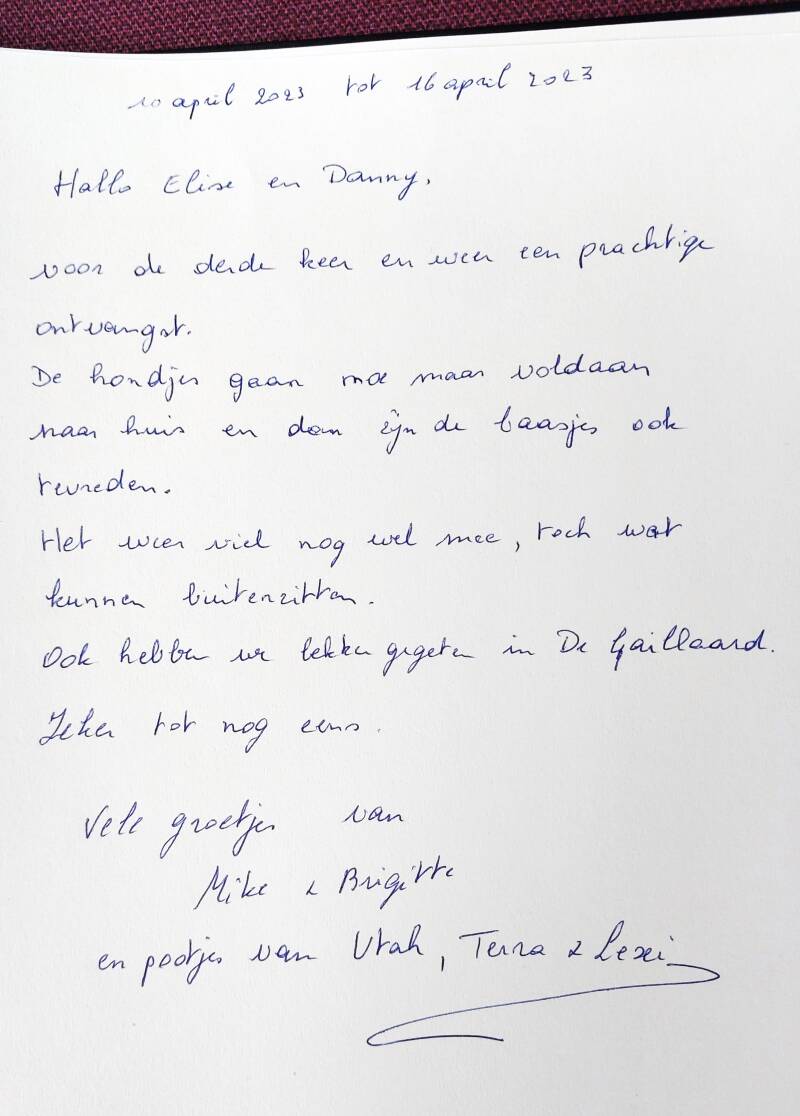 10 april 2023 tot 16 april 2023
Hallo Elise en Danny,
voor de derde keer en weer een prachtige
ontvangst.
De hondjes gaan moe maar voldaan
naar huis en dan zijn de baasjes ook
tevreden.
Het weer viel nog wel mee, toch wat
kunnen buitenzitten.
Ook hebben we lekker gegeten in De Gaillaard.
Zeker tot nog eens.
Vele groetjes van
Mike & Brigitte
en pootjes van Utah, Terra & Lexi